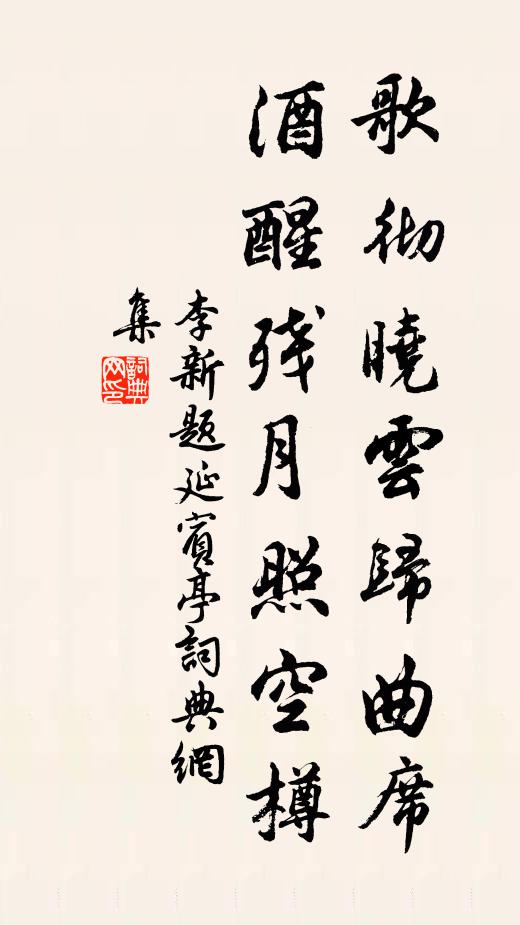 歌彻曉雲歸曲席
酒醒残月照空樽
李新题延賓亭詞典網
集
詞典
网印